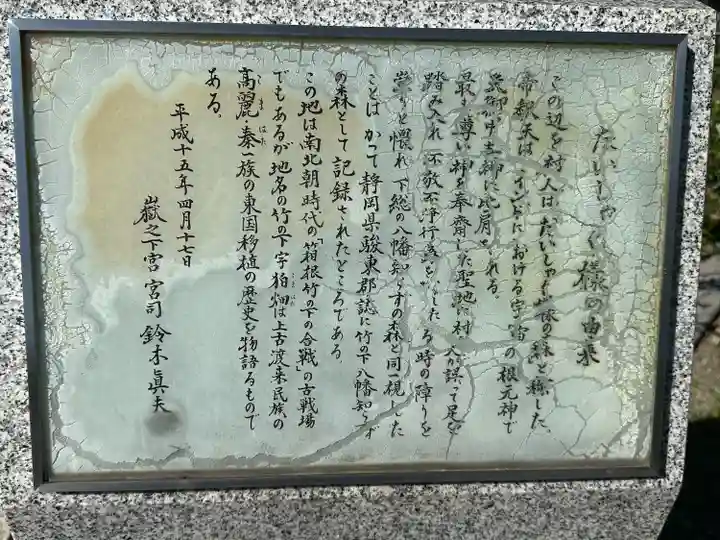 たいしゃく様の由来
この辺を村人は“たいしゃく”様の森と称した。
帝釈天は、インドにおける宇宙の根元神で
天御中主神に比肩される。
最も尊い神を奉齋した聖地に村人が誤って足を
踏み入れ、不敬不浄行為をした る時の障りを
営もと懼れ、下総の八幡知らずの森と同一視した
ことは かつて静岡県駿東郡誌に竹の下八幡知らず
の森として記録されたところである。
この地は南北朝時代の「箱根竹の下の合戦」の古戦場
でもあるが地名の竹の下字狛畑は上古渡来民族の
高麗、秦一族の東国移植の歴史を物語るもので
こま はた
ある。
平成十五年四月十七日
嶽之下宮宮司 鈴木眞夫